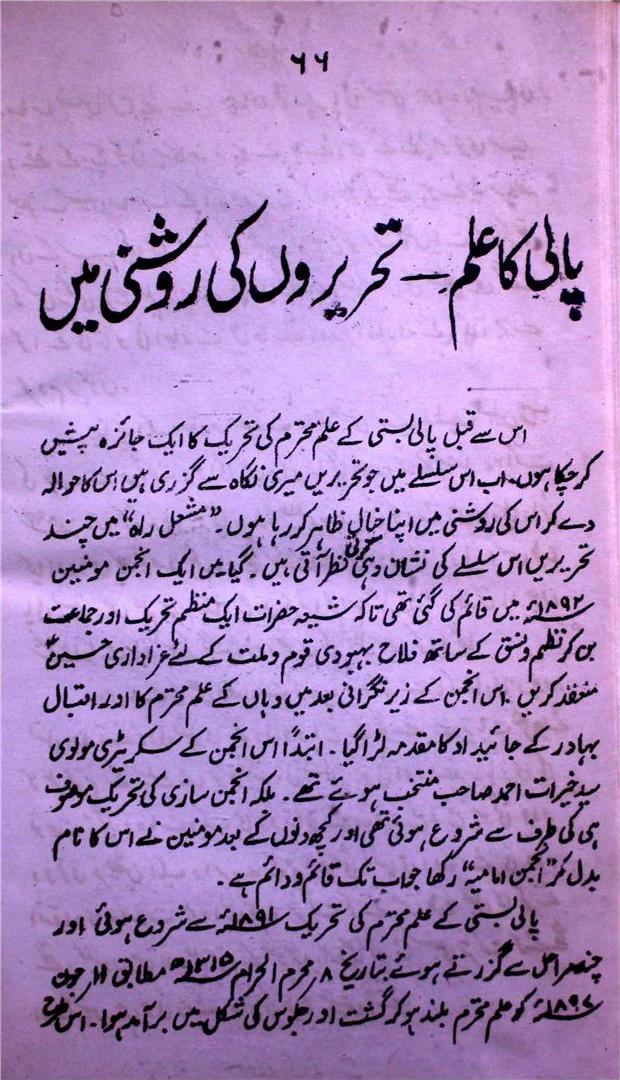 ۶۶
پالی کا علم - تحریروں کی روشنی میں
اس سے قبل پالی بستی کے علم محترم کی تحریک کا ایک جائزہ پیش
کر چکا ہوں۔ اب اس سلسلے میں جو تحریریں میری نگاہ سے گزری ہیں اس کا حوالہ
دے کر اس کی روشنی میں اپنا خیال ظاہر کر رہا ہوں۔ "مشعل راہ" میں چند
تحریریں اس سلسلے کی نشان دہی کرتی نظر آتی ہیں۔ گیا میں ایک انجمن مومنین
۱۸۹۲ء میں قائم کی گئی تھی تاکہ شیعہ حضرات ایک منظم تحریک اور جماعت
بن کر نظم و نسق کے ساتھ فلاح بہبودی قوم و ملت کے لئے عزاداری حسینؑ
منعقد کریں۔ اس انجمن کے زیر نگرانی بعد میں وہاں کے علم محترم کا اور اقبال
بہادر کے جائیداد کا مقدمہ لڑا گیا۔ ابتداً اس انجمن کے سکریٹری مولوی
سید خیرات احمد صاحب منتخب ہوئے تھے۔ بلکہ انجمن سازی کی تحریک موصوف
ہی کی طرف سے شروع ہوئی تھی اور کچھ دنوں کے بعد مومنین نے اس کا نام
بدل کر "انجمن امامیہ" رکھا جو اب تک قائم و دائم ہے۔
پالی بستی کے علم محترم کی تحریک ۱۸۹۱ء سے شروع ہوئی اور
چند مراحل سے گزرتے ہوئے بتاریخ ۸ محرم الحرام ۱۳۱۵ھ مطابق ۱۱ جون
۱۸۹۷ء کو علم محترم بلند ہو کر گشت اور جلوس کی شکل میں برآمد ہوا۔ اس طرح